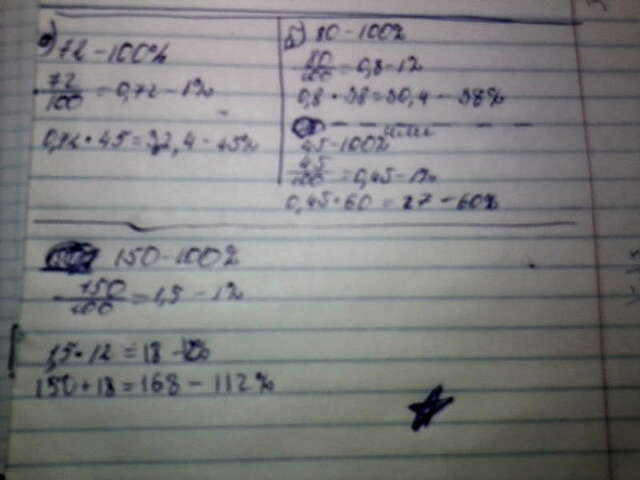 а) 72 - 100%
72/100 = 0,72 - 1%
0,72 · 45 = 32,4 - 45%
б) 80 - 100%
80/100 = 0,8 - 1%
0,8 · 38 = 30,4 - 38%
или
45 - 100%
45/100 = 0,45 - 1%
0,45 · 60 = 27 - 60%
150 - 100%
150/100 = 1,5 - 1%
1,5 · 12 = 18 - 12%
150 + 18 = 168 - 112%